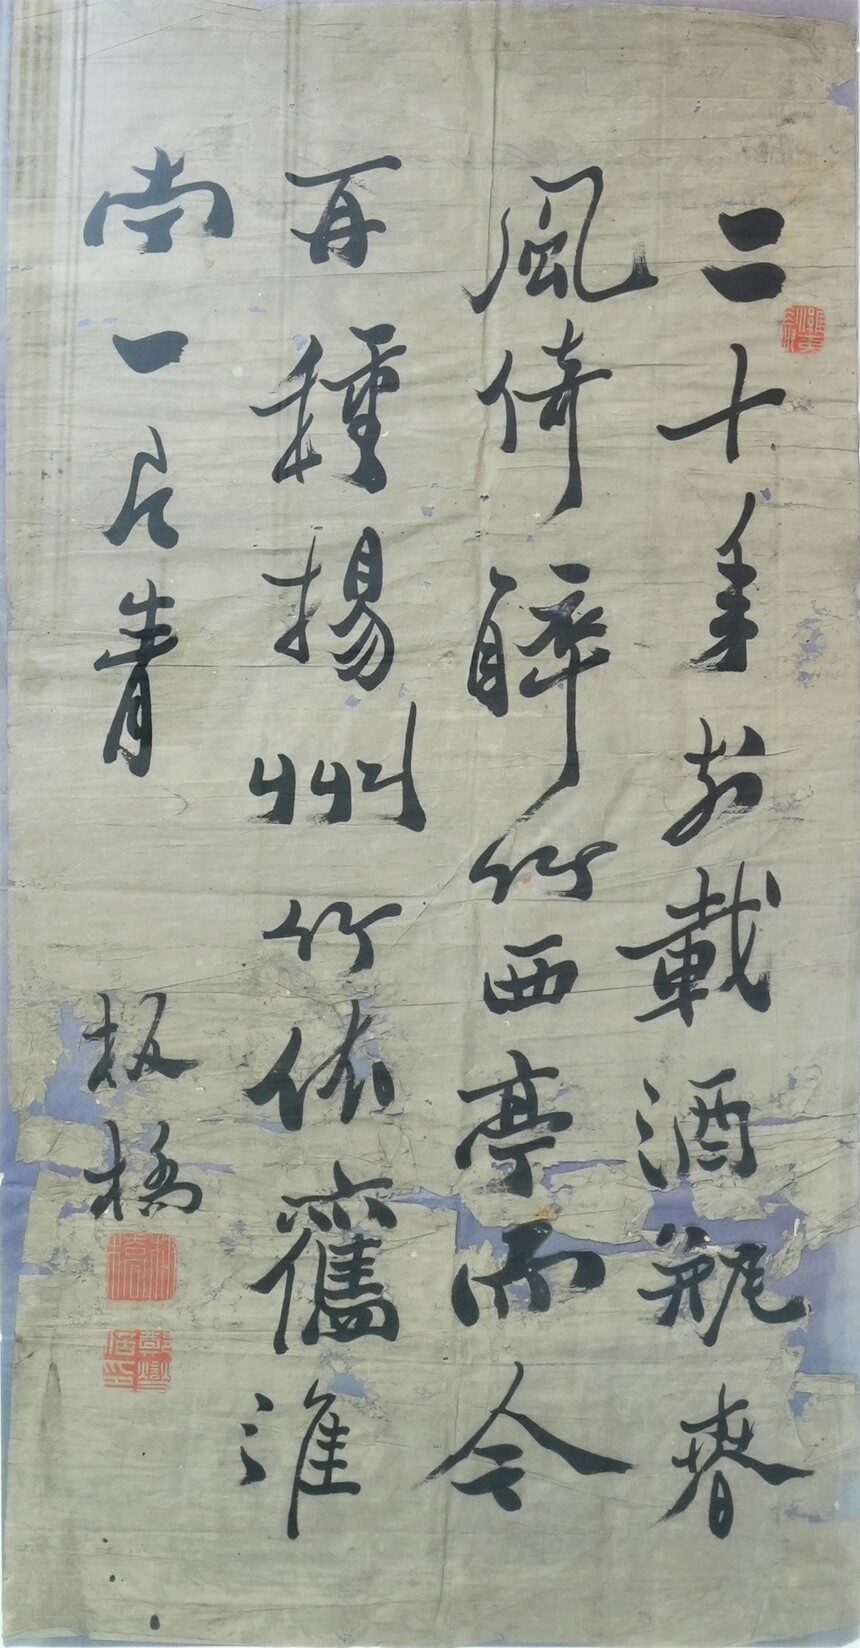 二十年前載酒瓶春
風倚醉竹西亭而今
再種揚州竹依舊淮
南一片青
板橋